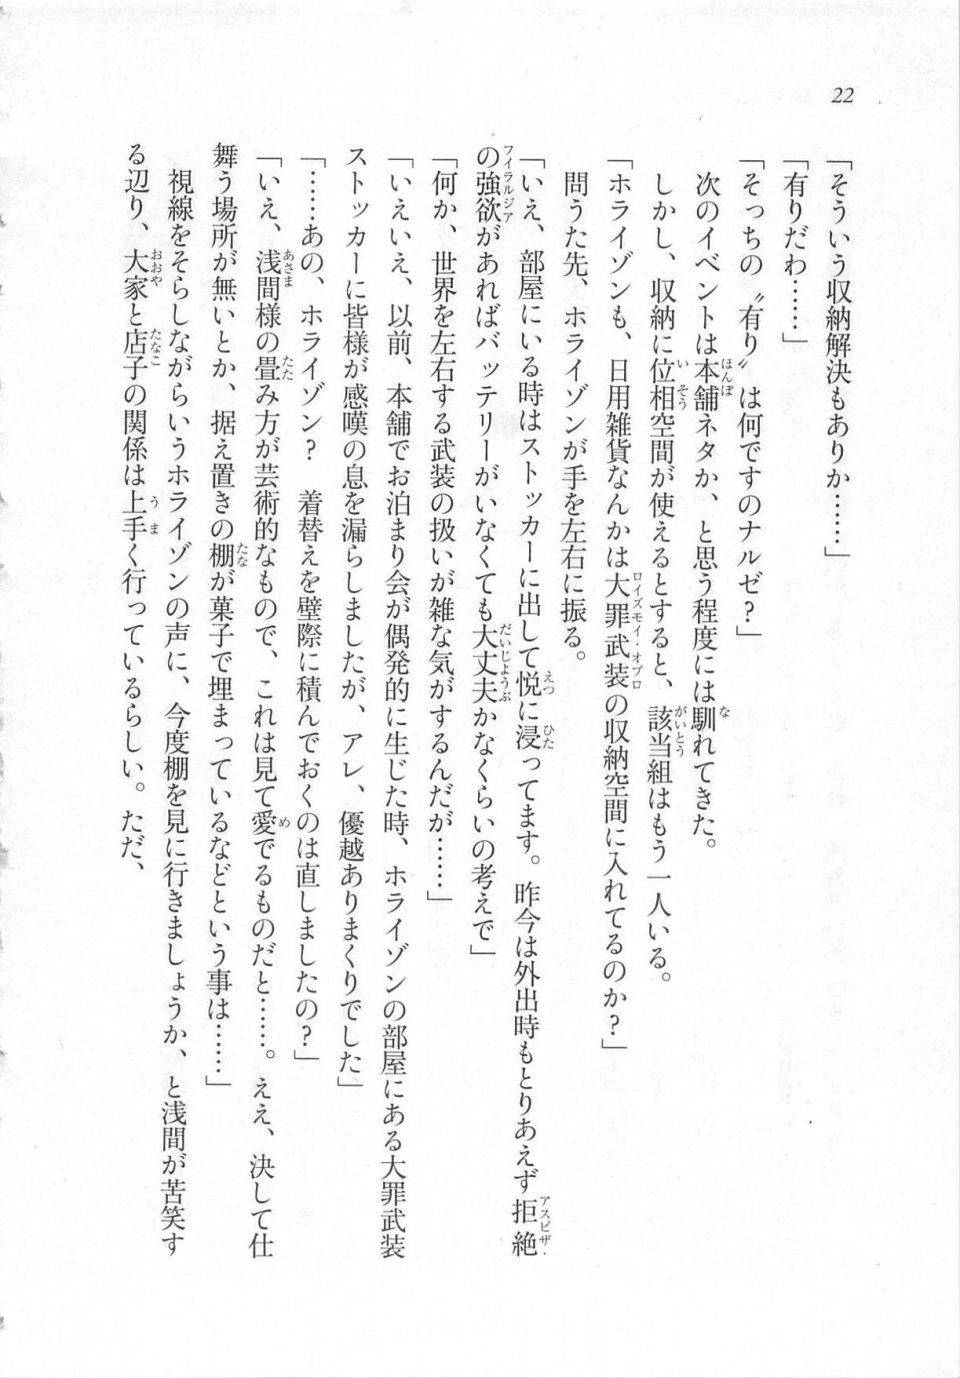 22
「そういう収納解決もありか……」
「有りだわ……」
「そっちの〝有り〟は何ですのナルゼ？」
次のイベントは本舗ネタか、と思う程度には馴れてきた。
しかし、収納に位相空間が使えるとすると、該当組はもう一人いる。
「ホライゾンも、日用雑貨なんかは大罪武装の収納空間に入れてるのか？」
問うた先、ホライゾンが手を左右に振る。
「いえ、部屋にいる時はストッカーに出して悦に浸ってます。昨今は外出時もとりあえず拒絶
の強欲があればバッテリーがいなくても大丈夫かなくらいの考えで」
「何か、世界を左右する武装の扱いが雑な気がするんだが……」
「いえいえ、以前、本舗でお泊まり会が偶発的に生じた時、ホライゾンの部屋にある大罪武装
ストッカーに皆様が感嘆の息を漏らしましたが、アレ、優越ありまくりでした」
「……あの、ホライゾン？　着替えを壁際に積んでおくのは直しましたの？」
「いえ、浅間様の畳み方が芸術的なもので、これは見て愛でるものだと……。ええ、決して仕
舞う場所が無いとか、据え置きの棚が菓子で埋まっているなどという事は……」
視線をそらしながらいうホライゾンの声に、今度棚を見に行きましょうか、と浅間が苦笑す
る辺り、大家と店子の関係は上手く行っているらしい。ただ、